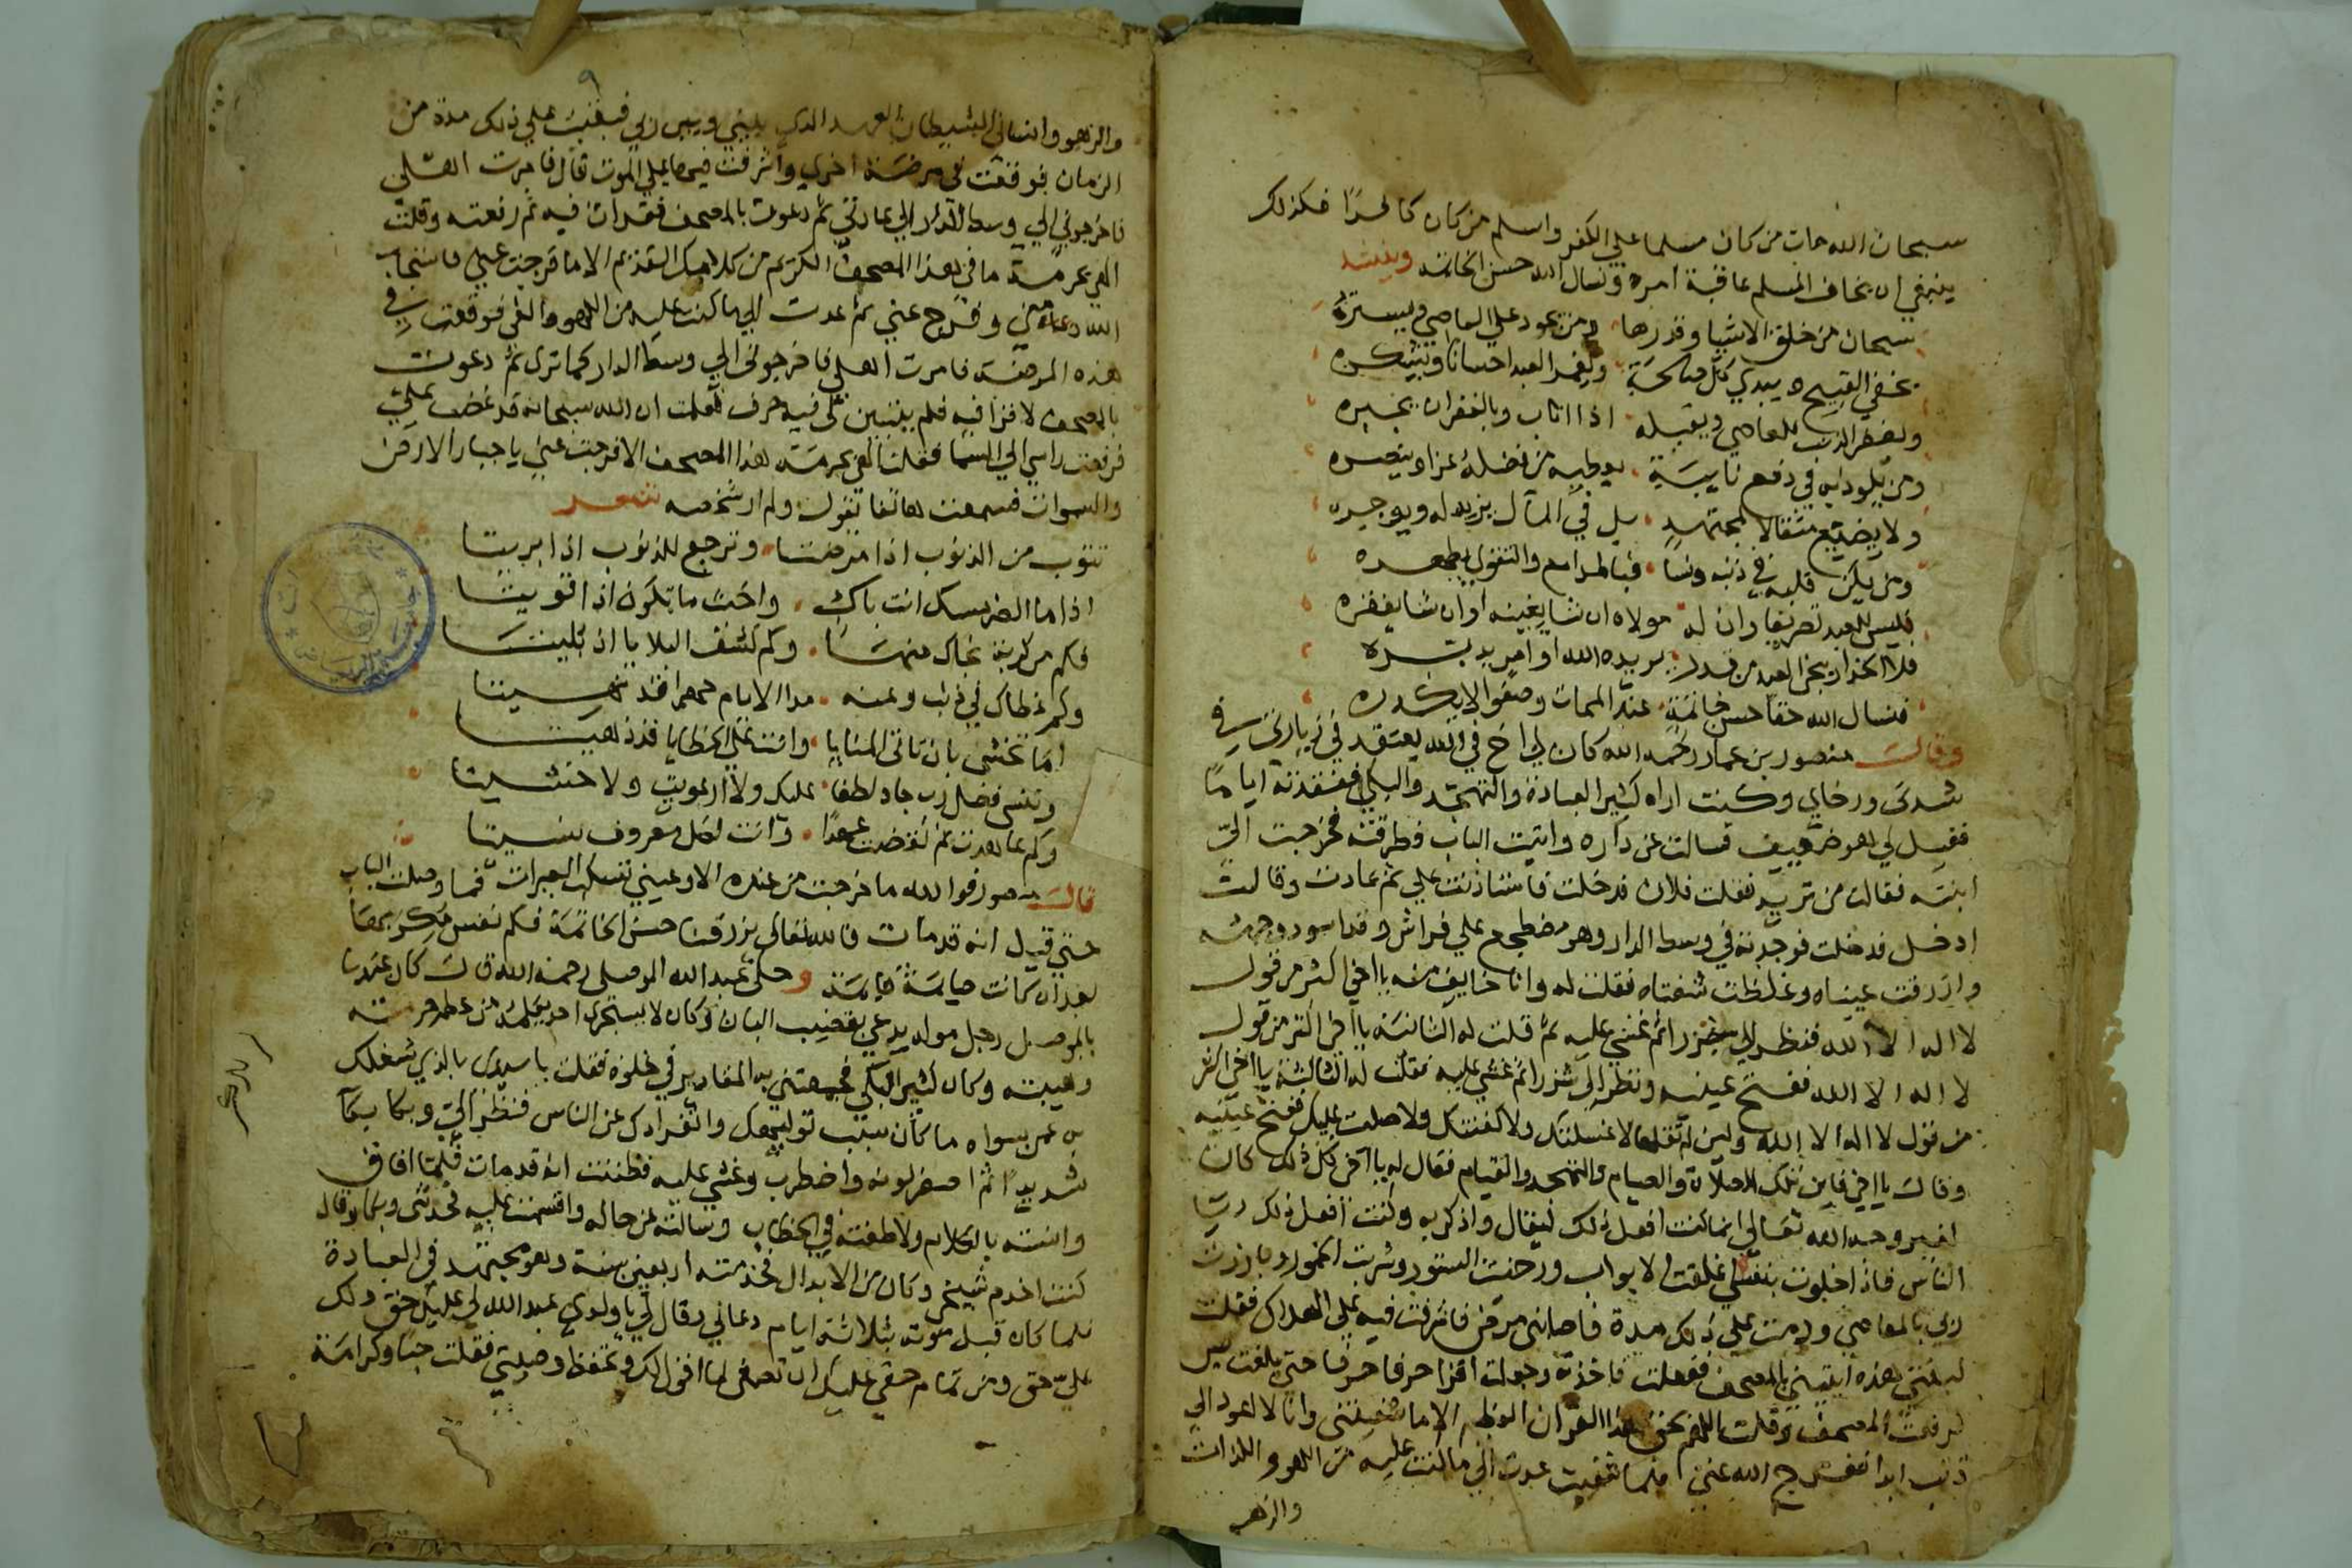 سبحان الله مات من كان مسلما علي الكفر واسلم من كان كافرًا فكذلك
ينبغي ان يخاف المسلم عاقبة امره ونسال الله حسن الخاتمه وينشد
سبحان من خلق الاشيا وقدرها ومن يجود علي العاصي ويستره
يخفي القبيح ويبدي كل صالحة ويغمر العبد احسانا ويشكره
ويغفر الذنب للعاصي ويقبله اذا اناب وبالغفران يجبره
ومن يلوذ به في دفع نايبة يعطيه من فضله عزا وينصره
ولا يضيع مثقالا لمجتهد بل في المآل يزيد له ويوجره
ومن يكن قلبه في ذنبه ونسا فبالمدامع والتقوي يطهره
فليس للعبد تصريفا وان له مولاه ان شا يغنيه او ان شا يفقره
فلا الحذار ينجي العبد من قدر يريده الله او امر يدبره
فنسال الله حقا حسن خاتمة عند الممات وصفوا لا يكدره
وقال منصور بن عمار رحمه الله كان لي اخ في الله يعتقد في زيارتي في
شدتي ورخاي وكنت اراه كثير العبادة والتهجد والبكي ففقدته اياما
فقيل لي هو ضعيف فسالت عن داره واتيت الباب فطرقته فخرجت الي
ابنته فقالت من تريد فقلت فلان فدخلت فاستاذنت علي ثم عادت وقالت
ادخل فدخلت فوجدته في وسط الدار وهو مضطجع علي فراش وقد اسود وجهه
وازرقت عيناه وغلظت شفتاه فقلت له وانا خايف منه يا اخي اكثر من قول
لا اله الا الله فنظر الي شزرا ثم غشي عليه ثم قلت له الثانية يا اخي اكثر من قول
لا اله الا الله ففتح عينيه ونظر الي شزرا ثم غشي عليه فقلت له الثالثة يا اخي اكثر
من قول لا اله الا الله ولين لم تقلها لا غسلتك ولا كفنتك ولا صليت عليك ففتح عينيه
وقال يا اخي فاين تلك الصلاة والصيام والتهجد والقيام فقال له يا اخي كل ذلك كان
لغير وجه الله تعالي انما كنت افعل ذلك ليقال واذكر به وكنت افعل ذلك ريا
الناس فاذا خلوت بنفسي غلقت الابواب ورخيت الستور وشربت الخمور وبارزت
ربي بالمعاصي ودمت علي ذلك مدة فاصابني مرض فاشرفت فيه علي الهلاك فقلت
لابنتي هذه ايتيني بالمصحف ففعلت فاخذته وجعلت اقرا حرفا حرفا حتي بلغت يس
فرفعت المصحف وقلت اللهم بحق هذا القران العظيم الا ما شفيتني وانا لا اعود الي
ذنب ابدا ففرج الله عني فلما شفيت عدت الي ما كنت عليه من اللهو واللذات
والزهو
٩
والزهو وانساني الشيطان العهد الذي بيني وبين ربي فبقيت علي ذلك مدة من
الزمان فوقعت في مرضة اخري واشرفت فيها علي الموت قال فامرت اهلي
فاخرجوني الي وسط الدار الي عادتي ثم دعوت بالمصحف فقرات فيه ثم رفعته وقلت
الهي بحرمة ما في هذا المصحف الكريم من كلامك القديم الا ما فرجت عني فاستجاب
الله دعاء مني وفرج عني ثم عدت الي ما كنت عليه من اللهو والغي فوقعت في
هذه المرضة فامرت اهلي فاخرجوني الي وسط الدار كما تري ثم دعوت
بالمصحف لاقرا فيه فلم يتبين لي فيه حرف فعلمت ان الله سبحانه قد غضب علي
فرفعت راسي الي السما فقلت الهي بحرمة هذا المصحف الا فرجت عني يا جبار الارض
والسموات فسمعت هاتفا يقول ولم ار شخصه شعر
تتوب من الذنوب اذا مرضتا وترجع للذنوب اذا بريتا
اذا ما الضر مسك انت باك واخبث ما تكون اذا قويتا
فكم من كربة نجاك منها وكم كشف البلايا اذ بليتا
وكم غطاك في ذنب وعنه مدا الايام جهرا قد نهيتا
اما تخشي بان تاتي المنايا وانت علي الخطايا قد دهيتا
وتنسي فضل رب جاد لطفا عليك ولا ارعويت ولا خشيتا
وكم عاهدت ثم نقضت عهدا وانت لكل معروف نسيتا
قال منصور فوالله ما خرجت من عنده الا وعيني تسكب العبرات فما وصلت الباب
حتي قيل انه قد مات فالله تعالي يرزقنا حسن الخاتمة فكم نفس
بعد ان كانت صايمة قايمة وحكي عبد الله الموصلي رحمه الله قال كان عندنا
بالموصل رجل موله يدعي بقضيب البان وكان لا يستجري احد يكلمه من عظم حرمته
وهيبته وكان كثير البكي فجمعتني به المقادير في خلوة فقلت يا سيدي بالذي شغلك
به عمن سواه ما كان سبب توليهك وانفرادك عن الناس فنظر الي وبكا بكآ
شديدا ثم اصفر لونه واضطرب وغشي عليه فظننت انه قد مات فلما افاق
وانسته بالكلام ولاطفته في الخطاب وسالته عن حاله واقسمت عليه فحدثني وبكا وقال
كنت اخدم شيخي وكان من الابدال فخدمته اربعين سنة وهو مجتهد في العبادة
فلما كان قبل موته بثلاثة ايام دعاني وقال لي يا ولدي عبد الله لي عليك حق ولك
علي حق ومن تمام حقي عليك ان تصغي لما اقول لك وتحفظ وصيتي فقلت حبا وكرامة